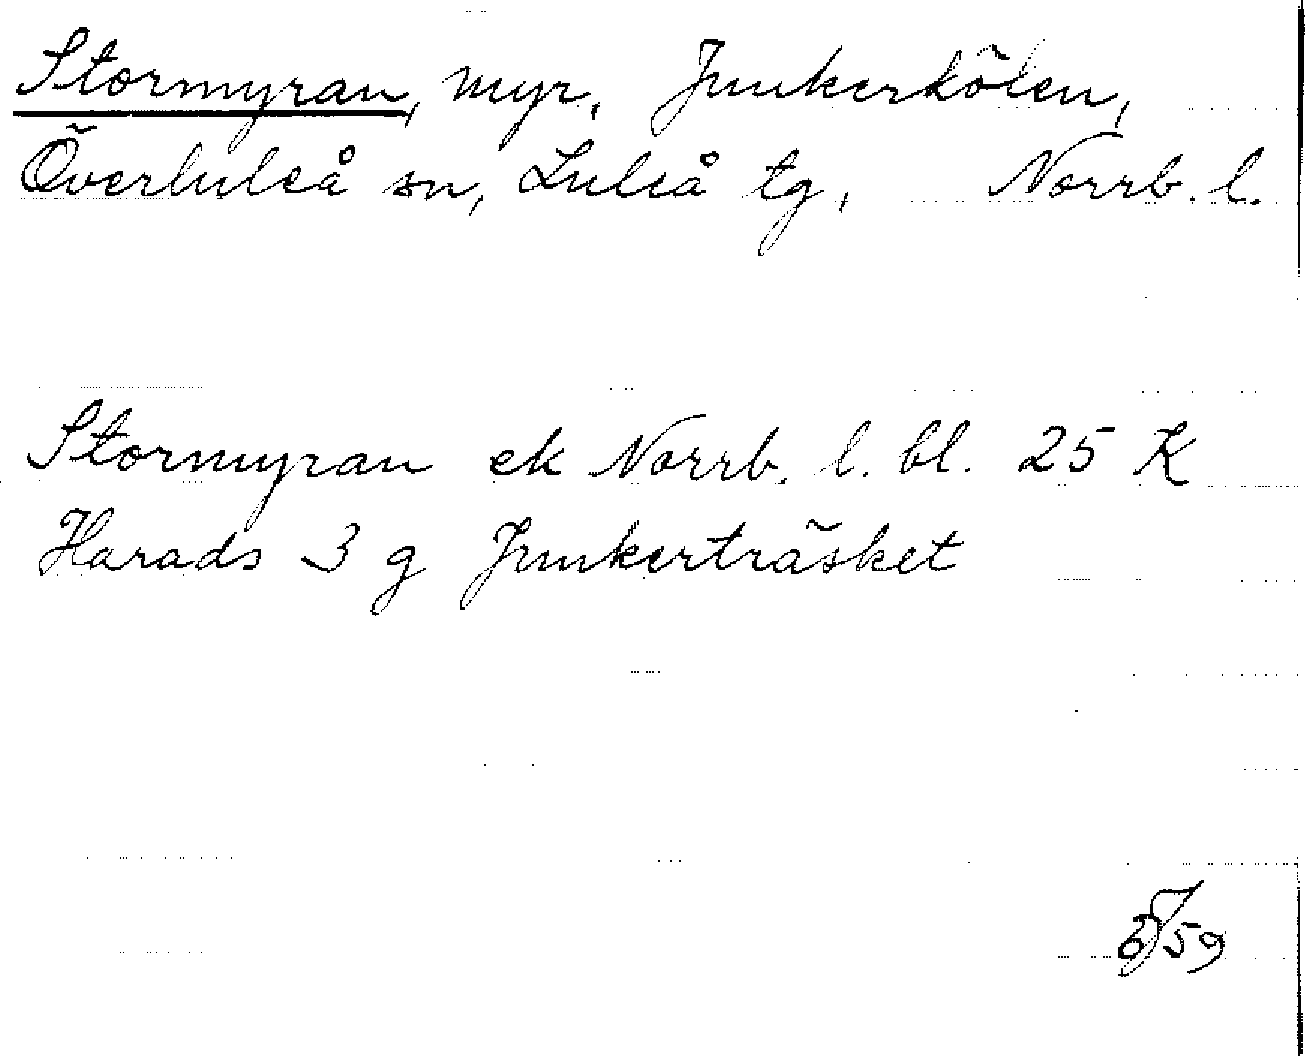 Stormyran, myr, Junkerkölen,
Överluleå sn, Luleå tg, Norrb. l.
Stormyran ek Norrb. l. bl. 25 K
Harads 3 g Junkerträsket